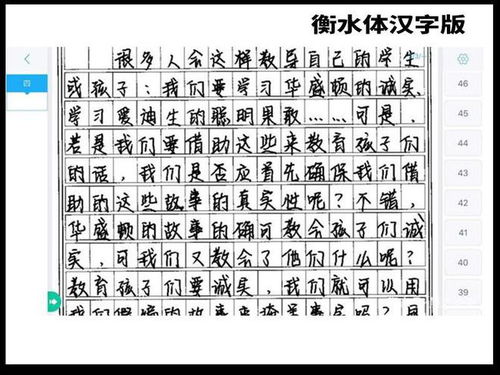 衡水体汉字版
很多人会这样教导自己的学生
或孩子：我们要学习华盛顿的诚实、
学习爱迪生的聪明果敢……可是，
若是我们要借助这些来教育孩子们
的话，我们是否应首先确保我们借
助的这些故事的真实性呢？不错，
华盛顿的故事的确可教会孩子们诚
实，可我们又教会了他们什么呢？
教育孩子们要诚实，我们就可以用
四
46
45
44
43
42
41
40
39